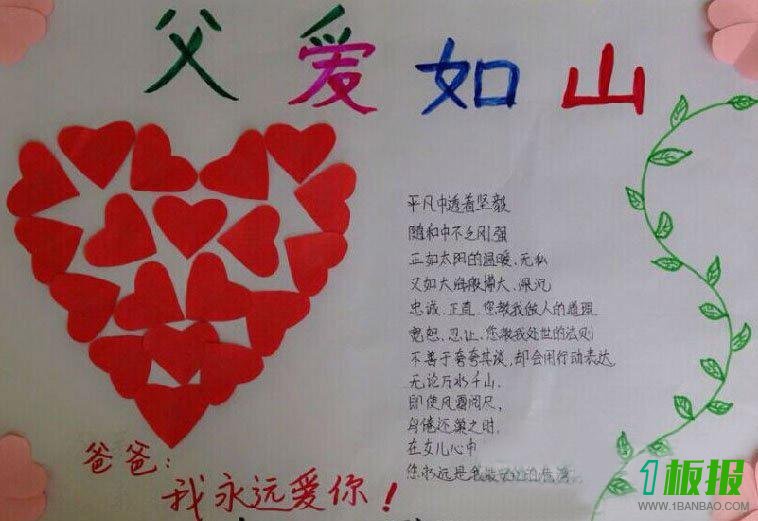 父爱如山
平凡中透着坚毅
随和中不乏刚强
正如太阳的温暖、无私
又如大海般博大、深沉
忠诚、正直、您教我做人的道理
宽恕、忍让、您教我处世的法则
不善于夸夸其谈,却会用行动表达
无论万水千山,
即使风霜闭尺,
鸟倦还巢之时,
在女儿心中
您永远是我最
爸爸:
我永远爱你!
1板报
WWW.1BANBAO.COM